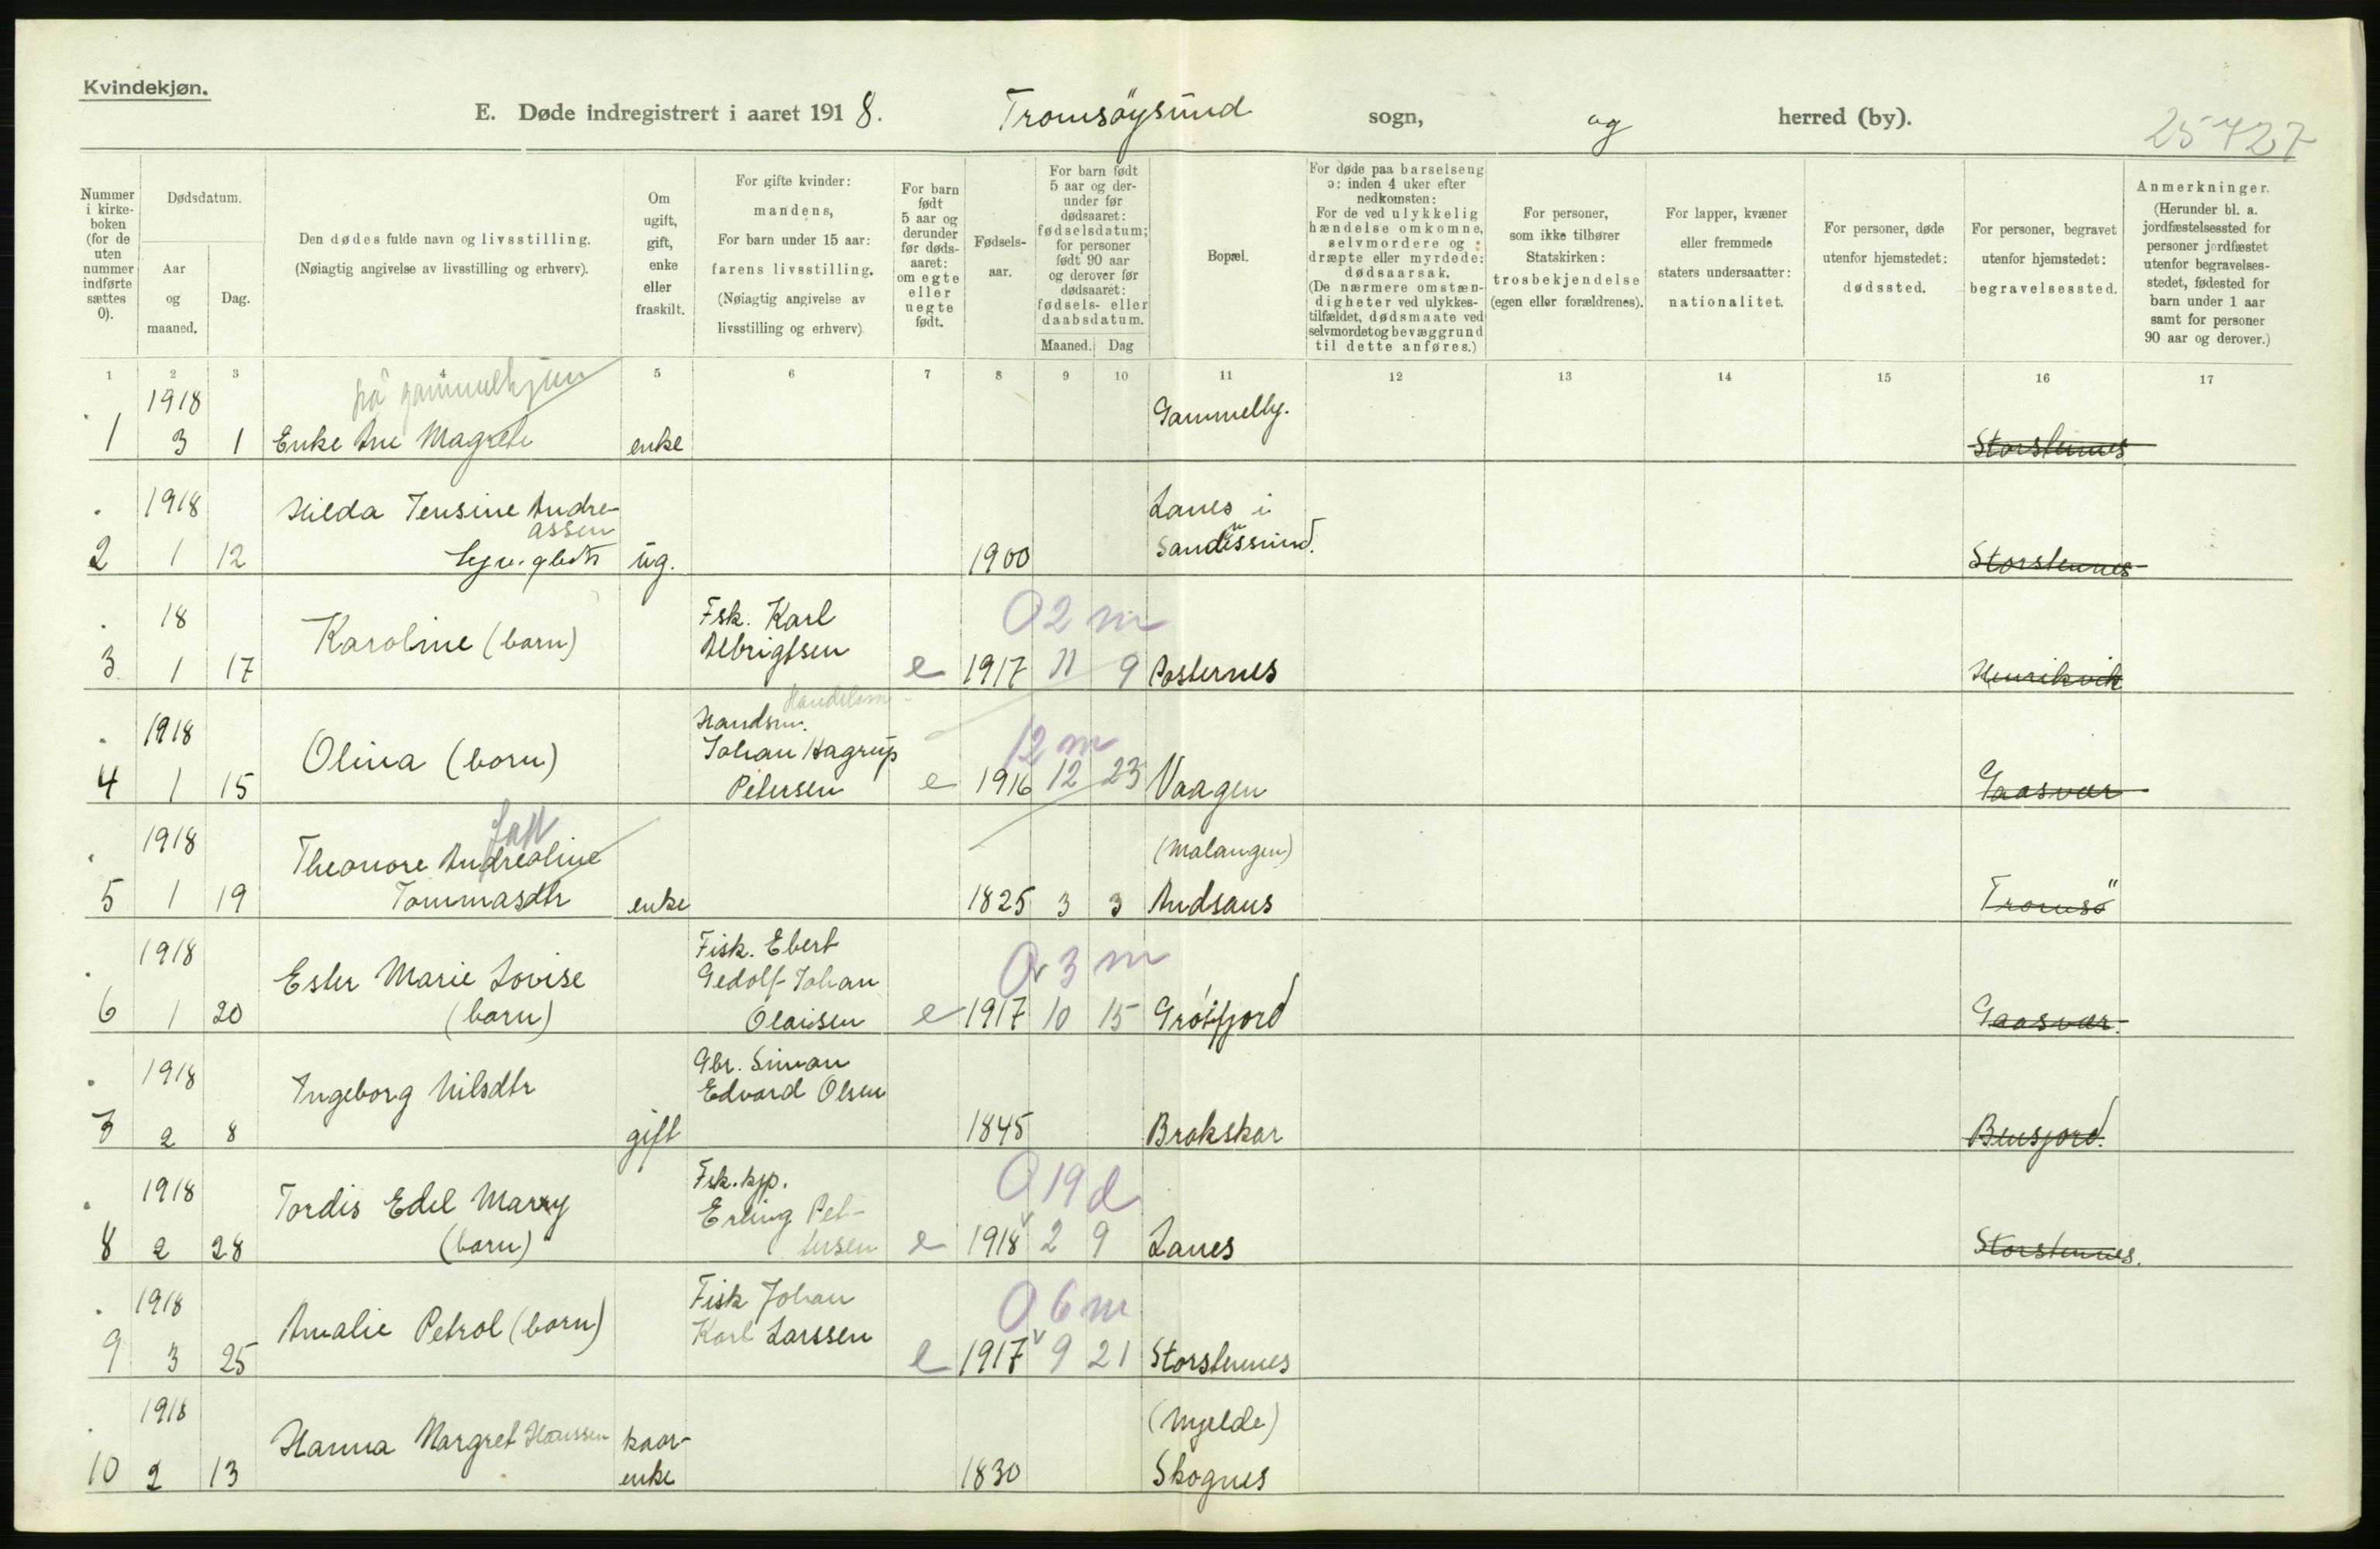 Kvindekjøn.
E. Døde indregistrert i aaret 1918. Tromsöysund sogn, og herred (by).
25727
Nummer i kirke-boken (for de uten nummer indførte sættes 0).
Dødsdatum.
Aar og maaned.
Dag.
Den dødes fulde navn og livsstilling.
(Nøiagtig angivelse av livsstilling og erhverv).
Om ugift, gift, enke eller fraskilt.
For gifte kvinder: mandens,
For barn under 15 aar: farens livsstilling.
(Nøiagtig angivelse av livsstilling og erhverv)
For barn født 5 aar og derunder før døds-aaret: om egte eller uegte født.
Fødsels-aar.
For barn født 5 aar og der-under før dødsaaret: fødselsdatum; for personer født 90 aar og derover før dødsaaret: fødsels- eller daabsdatum.
Maaned. Dag
Bopæl.
For døde paa barselseng ɔ: inden 4 uker efter nedkomsten:
For de ved ulykkelig hændelse omkomne, selvmordere og dræpte eller myrdede: dødsaarsak.
(De nærmere omstæn-digheter ved ulykkes-tilfældet, dødsmaate ved selvmordet og bevæggrund til dette anføres.)
For personer, som ikke tilhører Statskirken: trosbekjendelse (egen eller forældrenes).
For lapper, kvæner eller fremmede staters undersaatter: nationalitet.
For personer, døde utenfor hjemstedet: dødssted.
For personer, begravet utenfor hjemstedet: begravelsessted.
Anmerkninger.
(Herunder bl. a. jordfæstelsessted for personer jordfæstet utenfor begravelses-stedet, fødested for barn under 1 aar samt for personer 90 aar og derover.)
1 2 3 4 5 6 7 8 9 10 11 12 13 14 15 16 17
på gammelhjem
1918 Gammelby.
1 3 1 Enke Ane Magrete enke Storstennes
1918 Hilda Jensine Andre- Lanes i
assen
2 1 12 ug. 1900 Sandessund. Storstennes
18 Karoline (barn) Fsk. Karl 0 2 m
3 1 17 Albrigtsen e 1917 11 9 Posternes Henrikvik
Handelsm
1918 Handsm.
Olina (barn) Johan Hagrup 12 m
4 1 15 Petersen e 1916 12 23 Vaagen Gaasvær
1918 Theonore Andrealine (Malangen)
5 1 19 Tommasdtr enke 1825 3 3 Andsaus Tromsö
1918 Fisk. Ebert
Ester Marie Lovise Gedolf Johan 0 3 m
6 1 20 (barn) Olaisen e 1917 10 15 Grötfjord Gaasvær.
1918 Gbr. Simon
Ingeborg Nilsdtr Edvard Olsen
7 2 8 gift 1845 Brokskar Bensjord.
1918 Tordis Edel Marry Fsk. kjp. 0 19 d
Erling Pet-
8 2 28 (barn) tersen e 1918 2 9 Lanes Storstennes.
1918 Fisk Johan 0 6 m
Amalie Petrol (barn) Karl Larssen
9 3 25 e 1917 9 21 Storstennes
1918 (Mjelde)
Hanna Margret Hanssen kaar-
10 2 13 enke 1830 Skognes